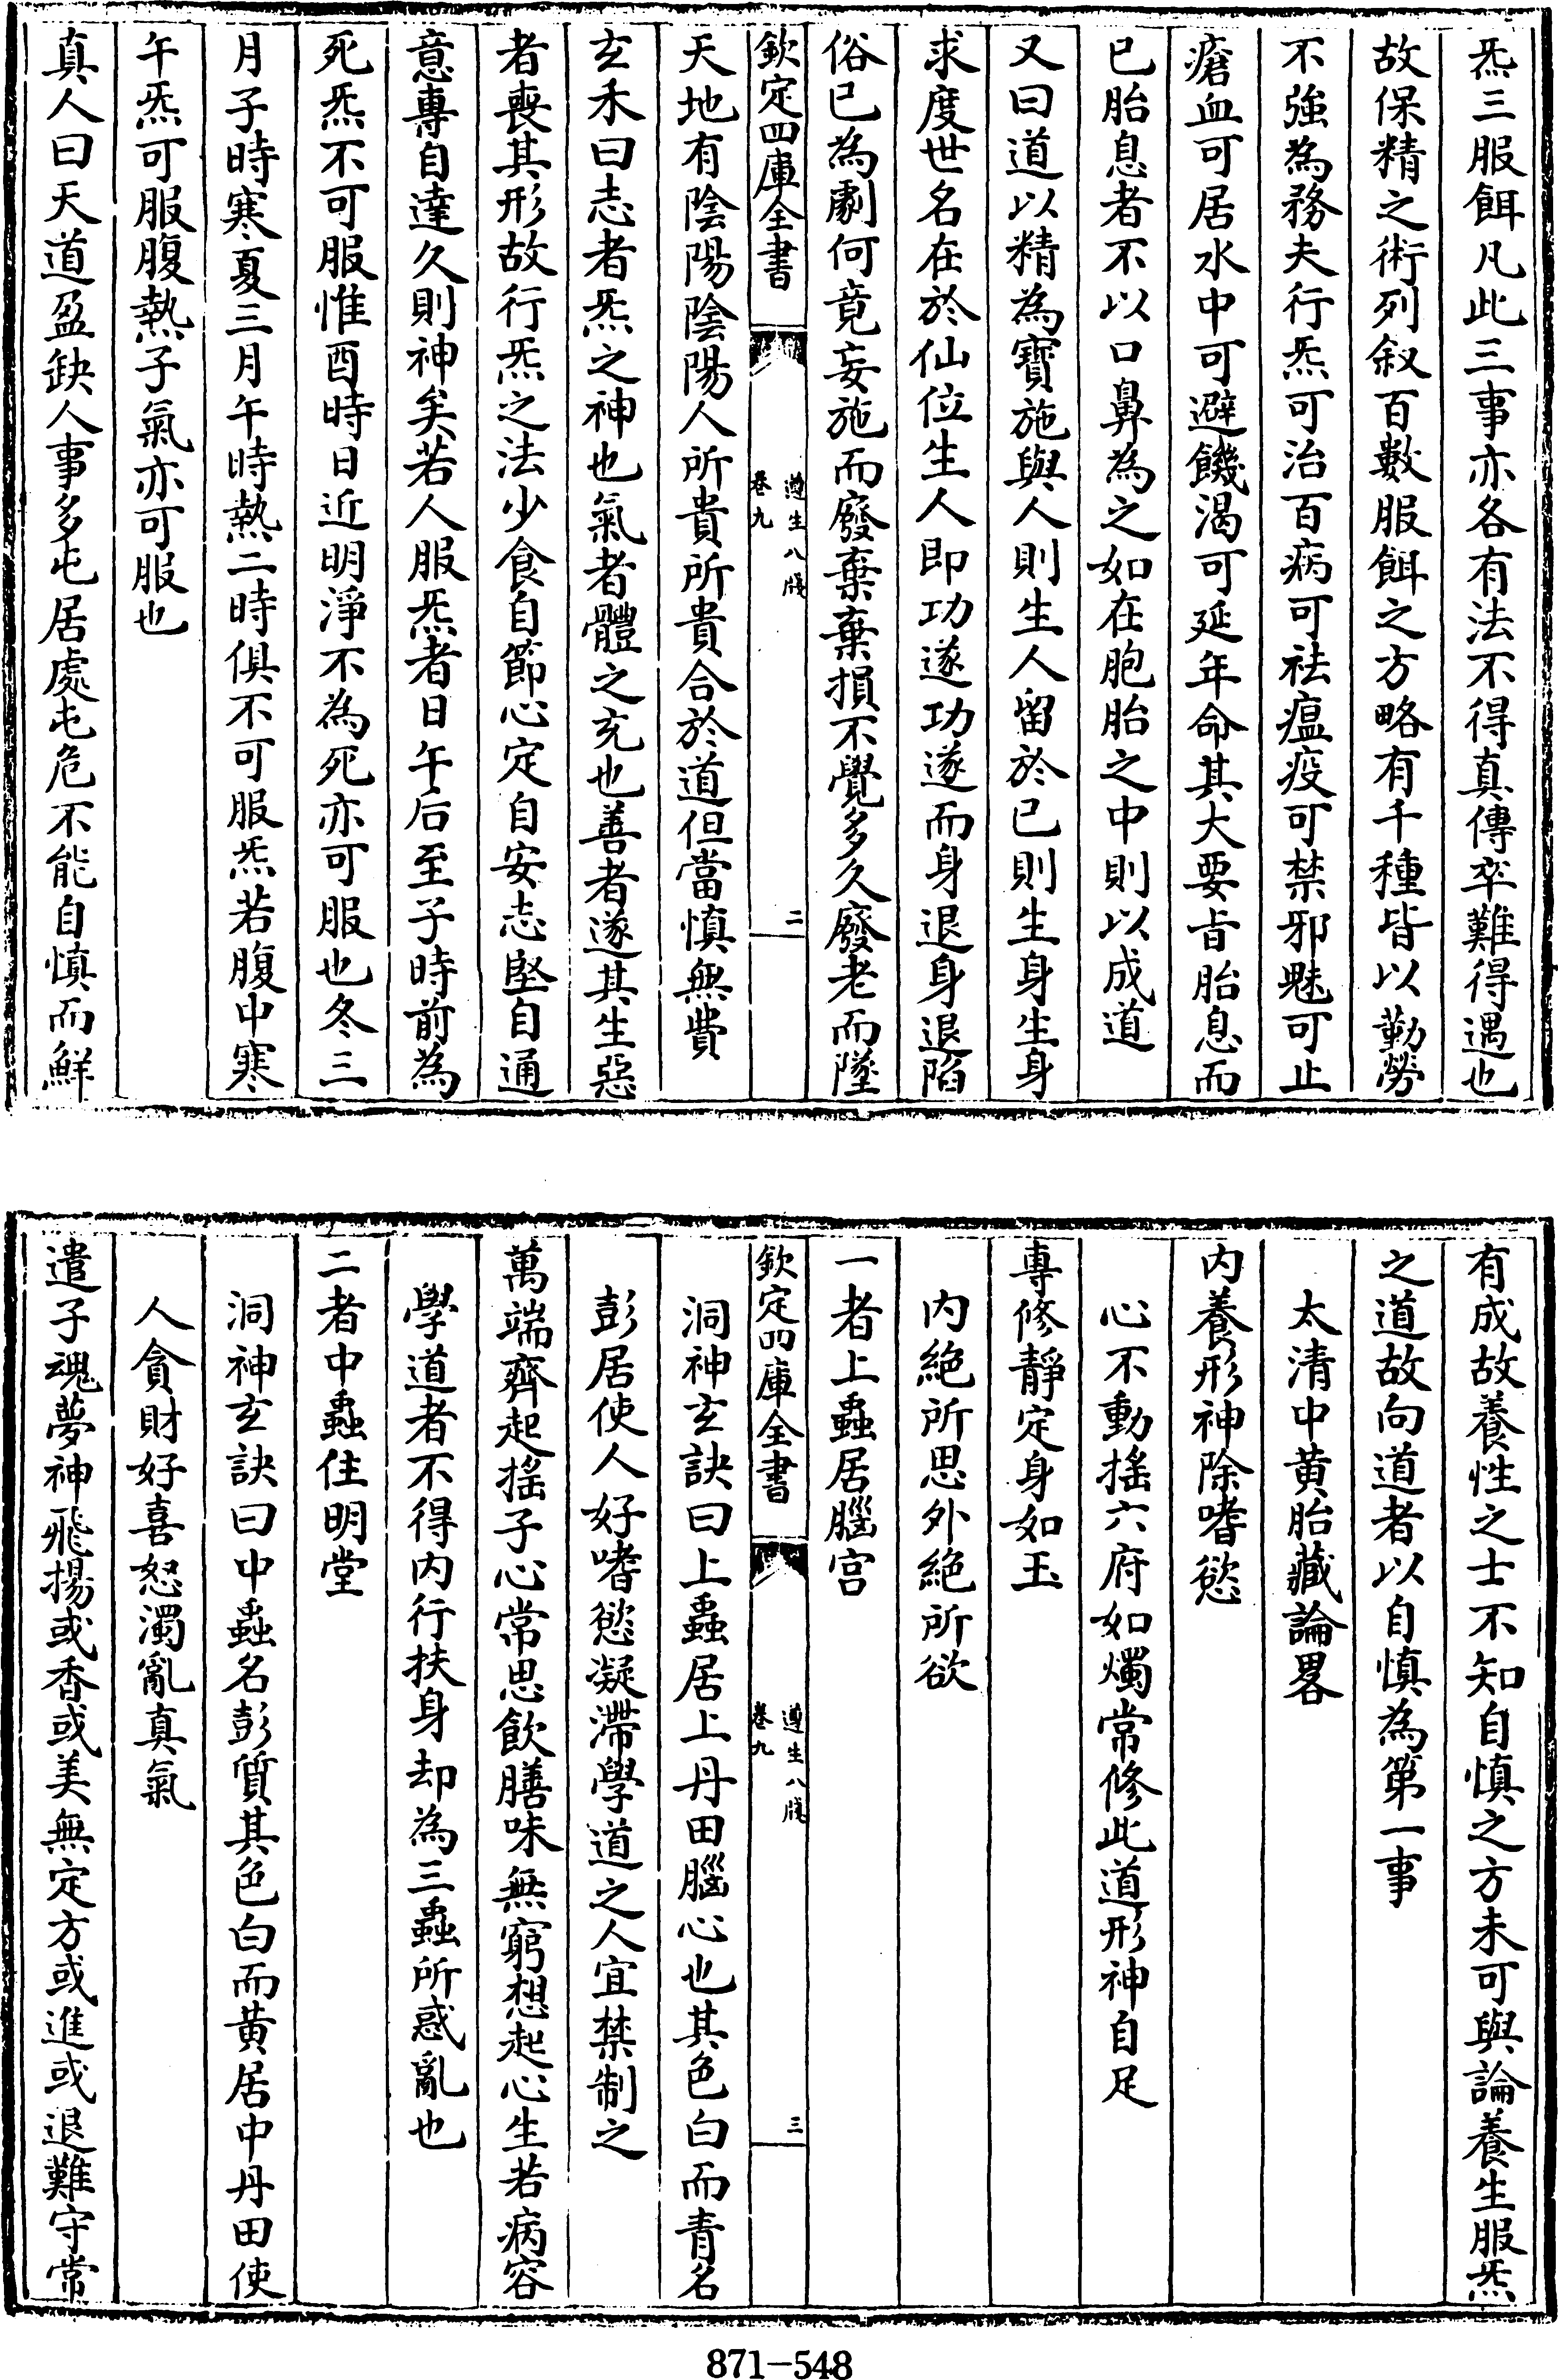 炁三服餌凡此三事亦各有法不得真傳卒難得遇也
故保精之術列叙百數服餌之方略有千種皆以勤勞
不強為務夫行炁可治百病可祛瘟疫可禁邪魅可止
瘡血可居水中可避饑渴可延年命其大要旨胎息而
已胎息者不以口鼻為之如在胞胎之中則以成道
又曰道以精為寶施與人則生人留於已則生身生身
求度世名在於仙位生人即功遂功遂而身退身退陷
俗已為劇何竟妄施而廢棄棄損不覺多久廢老而墜
欽定四庫全書
遵生八牋
卷九
二
天地有陰陽陰陽人所貴所貴合於道但當慎無費
玄禾曰志者炁之神也氣者體之充也善者遂其生惡
者喪其形故行炁之法少食自節心定自安志堅自通
意專自達久則神矣若人服炁者日午后至子時前為
死炁不可服惟酉時日近明淨不為死亦可服也冬三
月子時寒夏三月午時熱二時俱不可服炁若腹中寒
午炁可服腹熱子氣亦可服也
真人曰天道盈缺人事多屯居處屯危不能自慎而鮮
有成故養性之士不知自慎之方未可與論養生服炁
之道故向道者以自慎為第一事
太清中黃胎藏論畧
内養形神除嗜慾
心不動搖六府如燭常修此道形神自足
專修靜定身如玉
内絶所思外絶所欲
一者上蟲居腦宫
欽定四庫全書
遵生八牋
卷九
三
洞神玄訣曰上蟲居上丹田腦心也其色白而青名
彭居使人好嗜慾凝滯學道之人宜禁制之
萬端齊起搖子心常思飲膳味無窮想起心生若病容
學道者不得内行扶身却為三蟲所惑亂也
二者中蟲住明堂
洞神玄訣曰中蟲名彭質其色白而黃居中丹田使
人貪財好喜怒濁亂真氣
遣子魂夢神飛揚或香或美無定方或進或退難守常
871-548